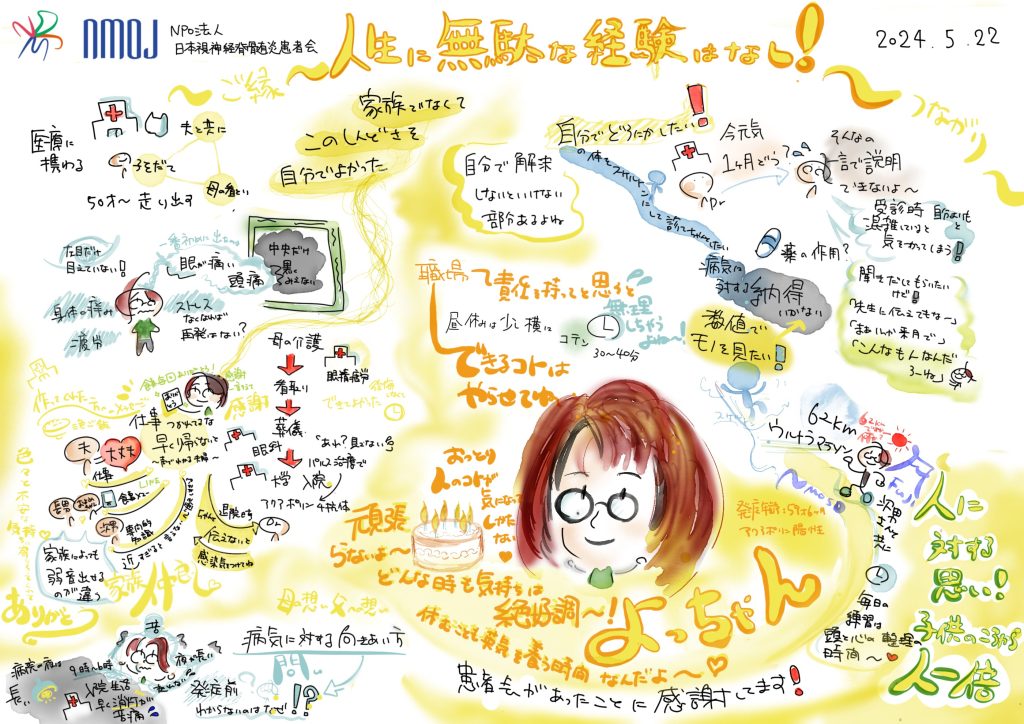 NMOJ
NPO法人
日本視神経脊髄炎患者会
人生に無駄な経験はなし!
2024.5.22
～ご縁
つながり
医療に
携わる
夫と共に
子そだて
母の看とい
50才～走り出す
家族でなくて
このしんどさを
自分でよかった
自分で解決
しないといけない
部分あるよね
自分でどうにかしたい!
今元気
1ヶ月どう?
Dr
そんなの
一言で説明
できないよ～
受診時
混雑していると
気をつかってしまう!
薬の作用?
病気に
対する
納得
いかない
数値で
モノを見たい!
聞きだしてもらいたい
けど!
「先生に伝えてもな～」
「まぁいいか来月で」
「こんなもんなんだ
ろーね」
左目だけ
見えていない!
一番初めに出たのは
眼が痛い
頭痛
中央だけ
黒く
みえない
身体の痛み
疲労
ストレス
なくなれば
再発はない?
職場
て責任を持ってと思うと
無理
しちゃう
よね～!
昼休みは少し横に
コテン
30～40分
できるコトは
やらせてね
母の介護
看取り
葬儀
眼科
大学
入院
眼精疲労
「あれ?見えない!」
パルス治療で
アクアポリン4抗体
感謝
できてよかった
仕事
つかれてるな
早り帰んないと
夫
大丈夫
仕事
LINE
長男
次男
専門的
知識
近すぎると言えない
ちゃんと
伝えないと
感染気をつけてね
家族によっても
弱音出せる
のが違う
家族仲良し♡
ありがと
母の想い 父への想い
おっとり
人のコトが
気になって
しかた
ない
頑張
らないよ～
どんな時も気持ちは
絶好調～!
休むことも英気を養う時間なんだよ～♡
よっちゃん
発症して5年6ヶ月
アクアポリン陽性
患者会があったことに感謝してます!
62km
ウルトラマラソン
Mt. FUJI
NMOSD
次男さんと共に
毎日の
練習は
頭と心の整理の
時間～♡
人に
対する
思い!
子供のころから
人一倍
病気に対する向きあい方
問い
発症前
わからないのはなぜ!?
病院の夜は
長い
9時～6時
夜が長い
入院生活
早く消灯が
苦痛